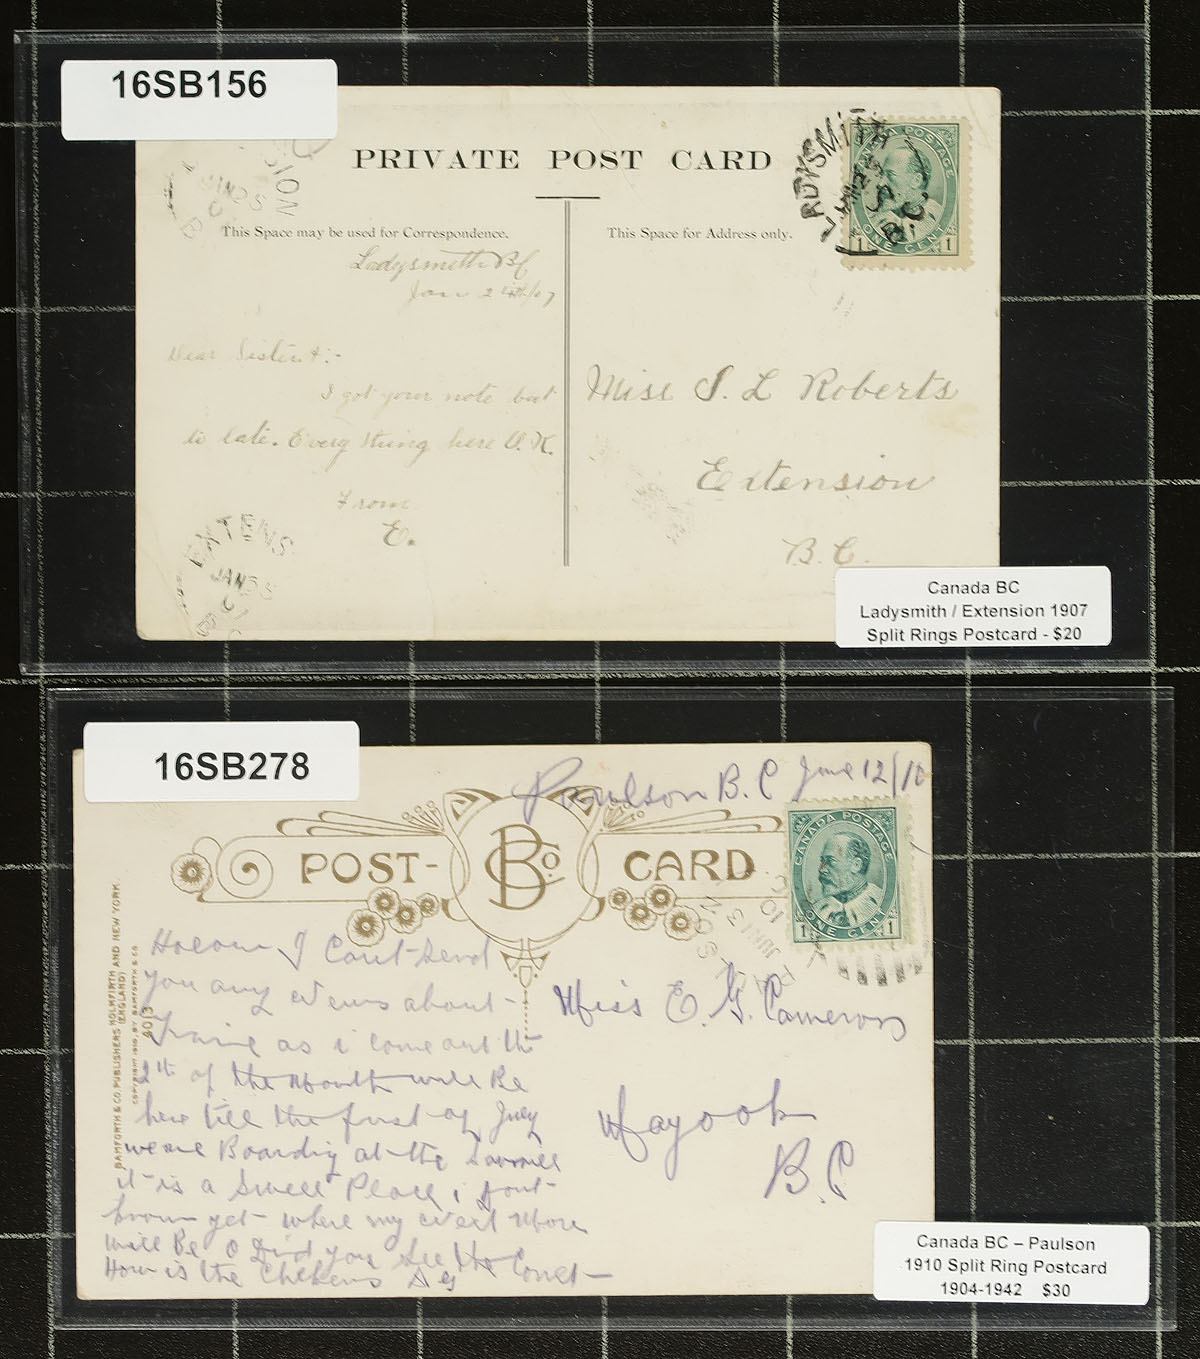 16SB156
PRIVATE POST CARD
This Space may be used for Correspondence.
This Space for Address only.
LADYSMITH
B.C.
CANADA POSTAGE
1 ONE CENT 1
SION
JAN 25
Ladysmith BC
Jan 24th/07
Dear Sister:-
I got your note but
to late. Every thing here O.K.
From
E.
Miss S. L Roberts
Extension
B.C.
EXTENS
JAN 25
Canada BC
Ladysmith / Extension 1907
Split Rings Postcard - $20
16SB278
Paulson B.C June 12/10
POST-
BCo
CARD
CANADA POSTAGE
1 ONE CENT 1
JUN 13
10
BAMFORTH & CO. PUBLISHERS HOLMFIRTH (ENGLAND) AND NEW YORK.
COPYRIGHT 1910, BY BAMFORTH & CO.
4013
I Cant Send
you any News about
as i come out the
2th of the Month will Be
here till the first of July
we are Boarding at the
it is a Swell Place i dont
know yet where my next Move
will Be Did you See
How is the Chekens
Miss E. G. Cameron
Wayook
B.C
Canada BC – Paulson
1910 Split Ring Postcard
1904-1942 $30